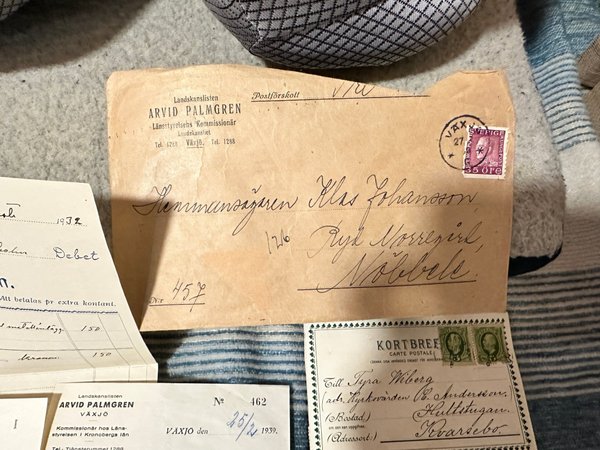 Landskanslisten
ARVID PALMGREN
Länsstyrelsens Kommissionär
Landskansliet
Tel. 1268 Växjö. Tel. 1268
Postförskott
VÄXJÖ
27
SVERIGE
35 ÖRE
Hemmansägaren Klas Johansson
Ryd Norregård,
Nöbbele.
126
N:r 457
1932
Debet
Att betalas pr extra kontant.
150
150
Landskanslisten
ARVID PALMGREN
VÄXJÖ
Kommissionär hos Läns-
styrelsen i Kronobergs län
Nº 462
VÄXJÖ den 25/2 1939.
KORTBREF
CARTE POSTALE
Till Tyra Wiberg
adr. Kyrkvärden E. Andersson
Hultstugan
(Bostad.)
Kvarsebo.
(Adressort.)